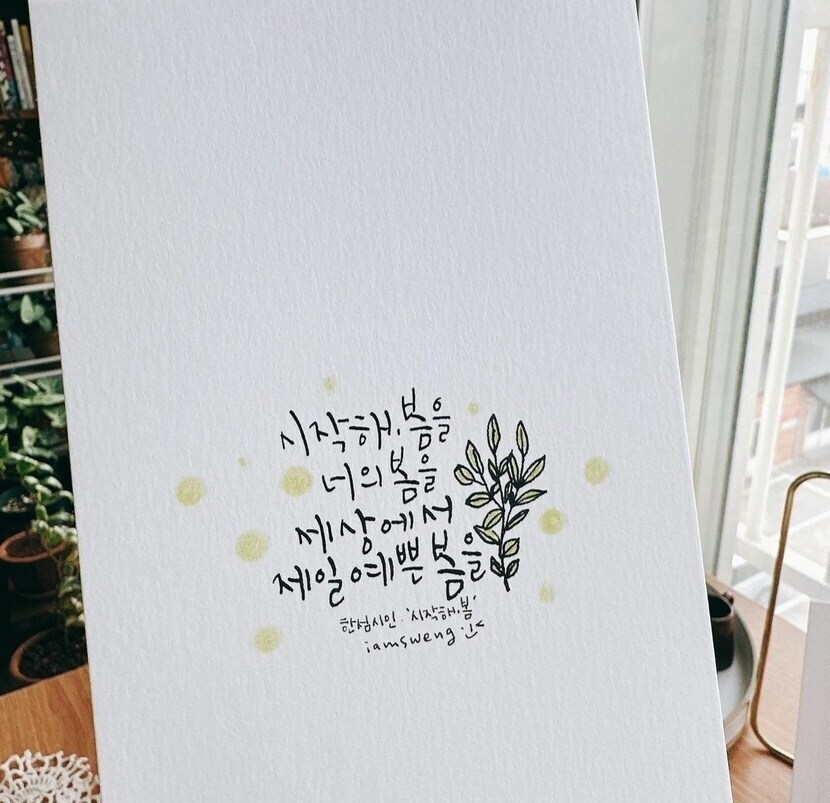 시작해, 봄을
너의 봄을
세상에서
제일 예쁜 봄을
한섬시인. '시작해, 봄'
iamsweng